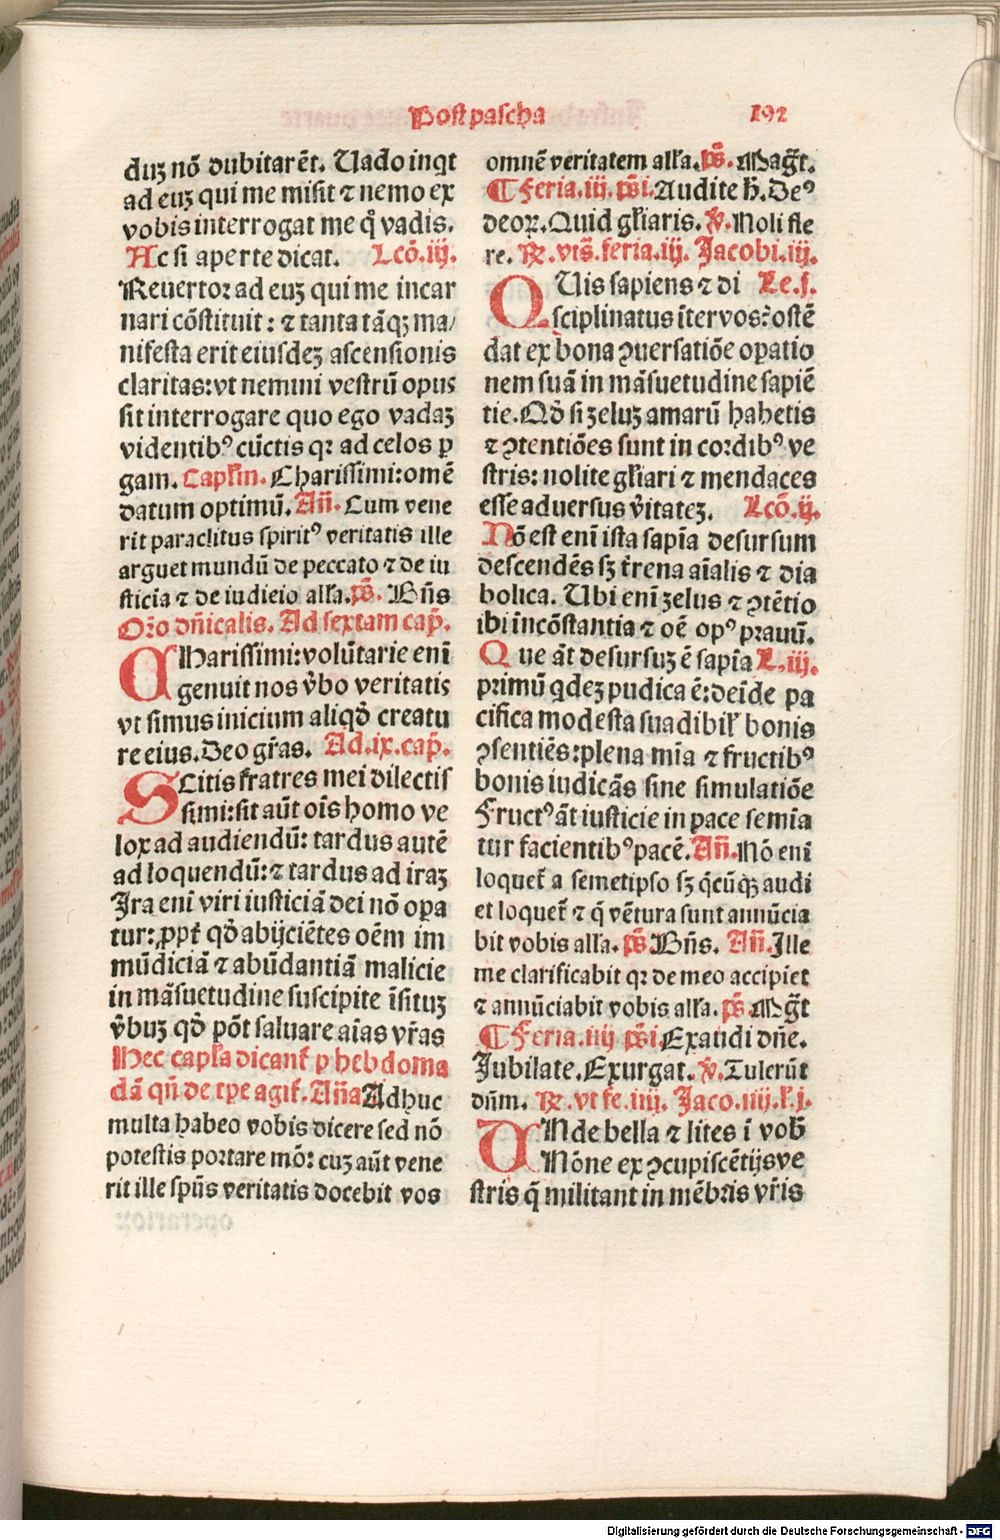 Post pascha 192
duꝫ nō dubitarēt. Uado inqt
ad euꝫ qui me misit ⁊ nemo ex
vobis interrogat me q̊ vadis.
Ac si aperte dicat. Lcō.iij.
Reuertoꝛ ad euꝫ qui me incar
nari cōstituit: ⁊ tanta tāqꝫ ma/
nifesta erit eiusdeꝫ ascensionis
claritas: vt nemini vestrū opus
sit interrogare quo ego vadaꝫ
videntibꝰ cūctis qꝛ ad celos p
gam. Capl'm. Charissimi: omē
datum optimū. Añ. Cum vene
rit paraclitus spiritꝰ veritatis ille
arguet mundū de peccato ⁊ de iu
sticia ⁊ de iudicio alľa. p̄s. Bñs
Oꝛo dñicalis. Ad sextam cap̄.
CHarissimi: volūtarie enī
genuit nos v̄bo veritatis
vt simus inicium aliqđ creatu
re eius. Deo gr̄as. Ad.ix.cap̄.
SCitis fratres mei dilectis
simi: sit aūt oīs homo ve
lox ad audiendū: tardus autē
ad loquendū: ⁊ tardus ad iraꝫ
Ira enī viri iusticiā dei nō oꝑa
tur: ꝓpt' qđ abijciētes oēm im
mūdiciā ⁊ abūdantiā malicie
in māsuetudine suscipite īsituꝫ
v̄buꝫ qđ pōt saluare aīas vr̄as
Hec capl'a dicant' p hebdoma
dā qñ de tꝑe agit'. Aña Adhuc
multa habeo vobis dicere sed nō
potestis poꝛtare mō: cuꝫ aūt vene
rit ille spūs veritatis docebit vos
omnē veritatem alľa. p̄s. Magt̄.
¶ Feria.iij. p̄si. Audite h̄. Deꝰ
deoꝝ. Quid gl'iaris. v̄. Noli fle
re. ℞. vts̄. feria.iij. Jacobi.iij.
QUis sapiens ⁊ di Le.j.
sciplinatus īter vos? ostē
dat ex bona ꝯuersatiōe oꝑatio
nem suā in māsuetudine sapiē
tie. Qđ si ꝫeluꝫ amarū habetis
⁊ ꝯtentiōes sunt in coꝛdibꝰ ve
stris: nolite gl'iari ⁊ mendaces
esse aduersus v̄itateꝫ. Lcō.ij.
Nō est enī ista sapīa desursum
descendēs sꝫ t'rena aīalis ⁊ dia
bolica. Ubi enī ꝫelus ⁊ ꝯtētio
ibi incōstantia ⁊ oē opꝰ pꝛauū.
Que āt desursuꝫ ē sapīa L.iij.
primū qdeꝫ pudica ē: deīde pa
cifica modesta suadibil' bonis
ꝯsentiēs: plena mīa ⁊ fructibꝰ
bonis iudicās sine simulatiōe
Fructꝰ āt iusticie in pace semīa
tur facientibꝰ pacē. Añ. Nō enī
loquet' a semetipso sꝫ qcūqꝫ audi
et loquet' ⁊ q̄ vētura sunt annūcia
bit vobis alľa. p̄s. Bñs. Añ. Ille
me clarificabit qꝛ de meo accipiet
⁊ annūciabit vobis alľa. p̄s. Mgt̄
¶ Feria.iiij p̄si. Exaudi dñe.
Jubilate. Exurgat. v̄. Tulerūt
dñm. ℞. vt fe.iiij. Jaco.iiij.l'.j.
UNde bella ⁊ lites ī vob̄
Nōne ex ꝯcupiscētijs ve
stris q̄ militant in mēbris vr̄is
Digitalisierung gefördert durch die Deutsche Forschungsgemeinschaft - DFG